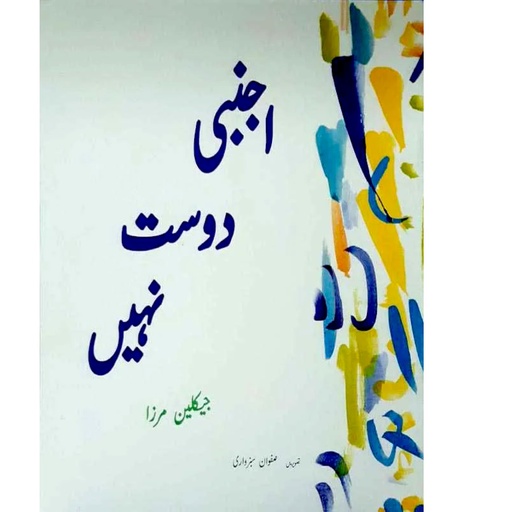 اجنبی
دوست
نہیں
جیکلین مرزا
تصویریں صفوان سبزواری